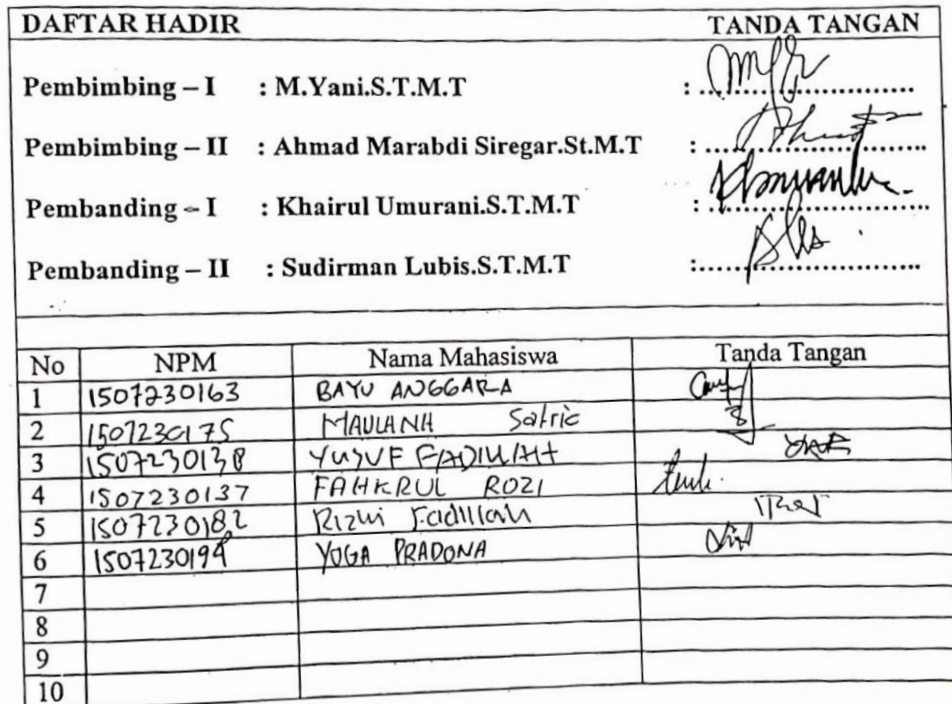 DAFTAR HADIR TANDA TANGAN
Pembimbing – I : M.Yani.S.T.M.T : ....................
Pembimbing – II : Ahmad Marabdi Siregar.St.M.T : ....................
Pembanding – I : Khairul Umurani.S.T.M.T : ....................
Pembanding – II : Sudirman Lubis.S.T.M.T :....................
No NPM Nama Mahasiswa Tanda Tangan
1 1507230163 BAYU ANGGARA
2 1507230175 MAULANA Satric
3 1507230138 YUSUF FADILLAH
4 1507230137 FAHKRUL ROZI
5 1507230182 Rizwi Fadillah
6 1507230194 YOGA PRADONA
7
8
9
10